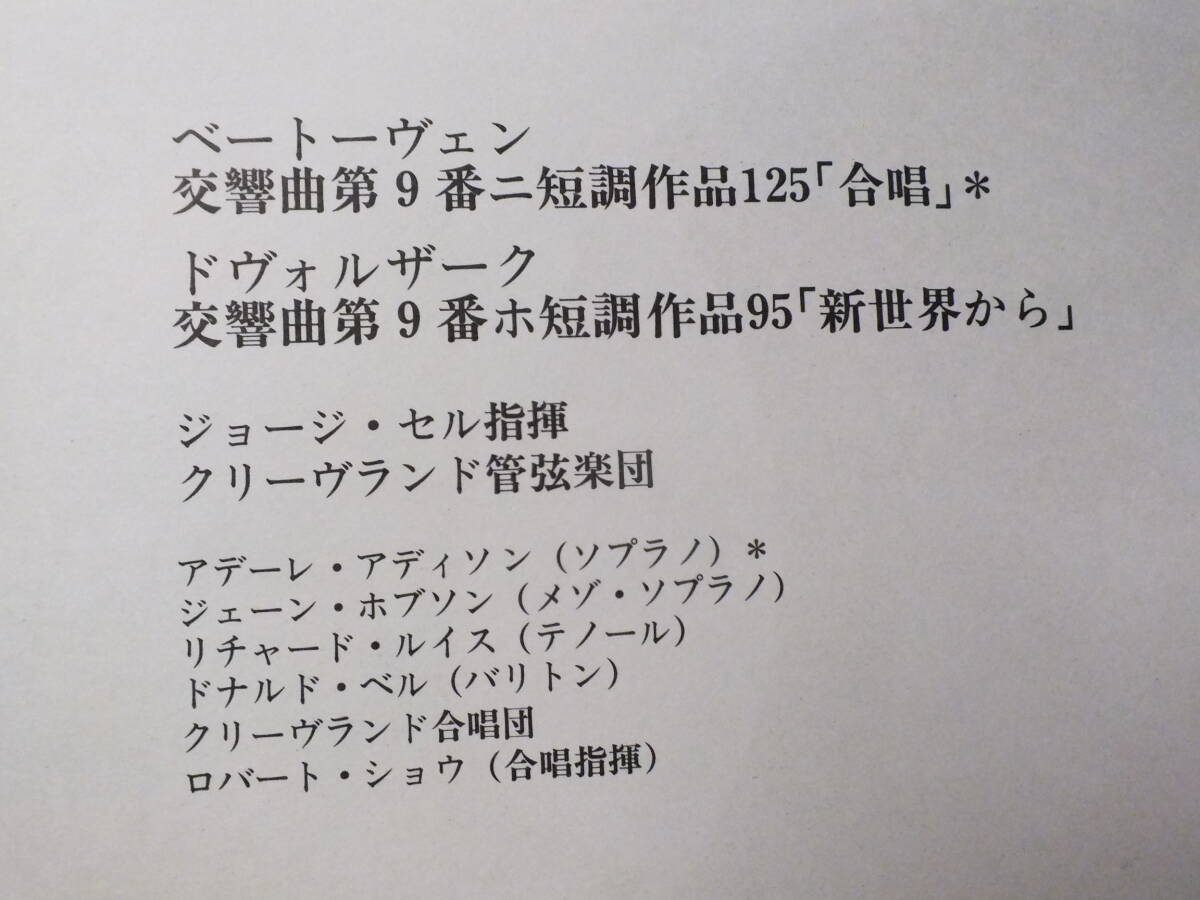 ベートーヴェン
交響曲第9番ニ短調作品125「合唱」＊
ドヴォルザーク
交響曲第9番ホ短調作品95「新世界から」
ジョージ・セル指揮
クリーヴランド管弦楽団
アデーレ・アディソン（ソプラノ）＊
ジェーン・ホブソン（メゾ・ソプラノ）
リチャード・ルイス（テノール）
ドナルド・ベル（バリトン）
クリーヴランド合唱団
ロバート・ショウ（合唱指揮）